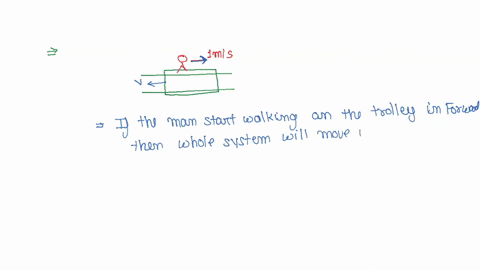 ⇒
1m/s
V
⇒ If the man start walking on the trolley in Forward
then whole system will move